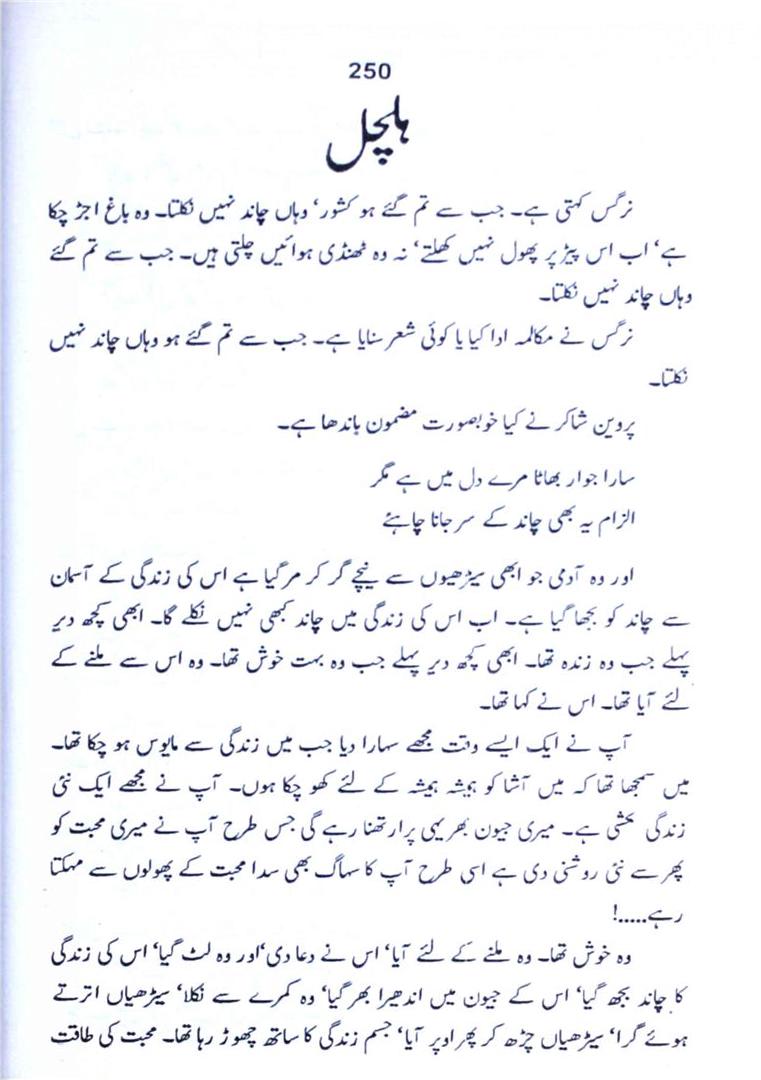 250
ہلچل
نرگس کہتی ہے۔ جب سے تم گئے ہو کشور‘ وہاں چاند نہیں نکلتا۔ وہ باغ اجڑ چکا
ہے‘ اب اس پیڑ پر پھول نہیں کھلتے‘ نہ وہ ٹھنڈی ہوائیں چلتی ہیں۔ جب سے تم گئے
وہاں چاند نہیں نکلتا۔
نرگس نے مکالمہ ادا کیا یا کوئی شعر سنایا ہے۔ جب سے تم گئے ہو وہاں چاند نہیں
نکلتا۔
پروین شاکر نے کیا خوبصورت مضمون باندھا ہے۔
سارا جوار بھاٹا مرے دل میں ہے مگر
الزام یہ بھی چاند کے سر جانا چاہئے
اور وہ آدمی جو ابھی سیڑھیوں سے نیچے گر کر مر گیا ہے اس کی زندگی کے آسمان
سے چاند کو بجھا گیا ہے۔ اب اس کی زندگی میں چاند کبھی نہیں نکلے گا۔ ابھی کچھ دیر
پہلے جب وہ زندہ تھا۔ ابھی کچھ دیر پہلے جب وہ بہت خوش تھا۔ وہ اس سے ملنے کے
لئے آیا تھا۔ اس نے کہا تھا۔
آپ نے ایک ایسے وقت مجھے سہارا دیا جب میں زندگی سے مایوس ہو چکا تھا۔
میں سمجھا تھا کہ میں آشا کو ہمیشہ ہمیشہ کے لئے کھو چکا ہوں۔ آپ نے مجھے ایک نئی
زندگی بخشی ہے۔ میری جیون بھر یہی پرارتھنا رہے گی جس طرح آپ نے میری محبت کو
پھر سے نئی روشنی دی ہے اسی طرح آپ کا سہاگ بھی سدا محبت کے پھولوں سے مہکتا
رہے.....!
وہ خوش تھا۔ وہ ملنے کے لئے آیا‘ اس نے دعا دی‘ اور وہ لٹ گیا‘ اس کی زندگی
کا چاند بجھ گیا‘ اس کے جیون میں اندھیرا بھر گیا‘ وہ کمرے سے نکلا‘ سیڑھیاں اترتے
ہوئے گرا‘ سیڑھیاں چڑھ کر پھر اوپر آیا‘ جسم زندگی کا ساتھ چھوڑ رہا تھا۔ محبت کی طاقت